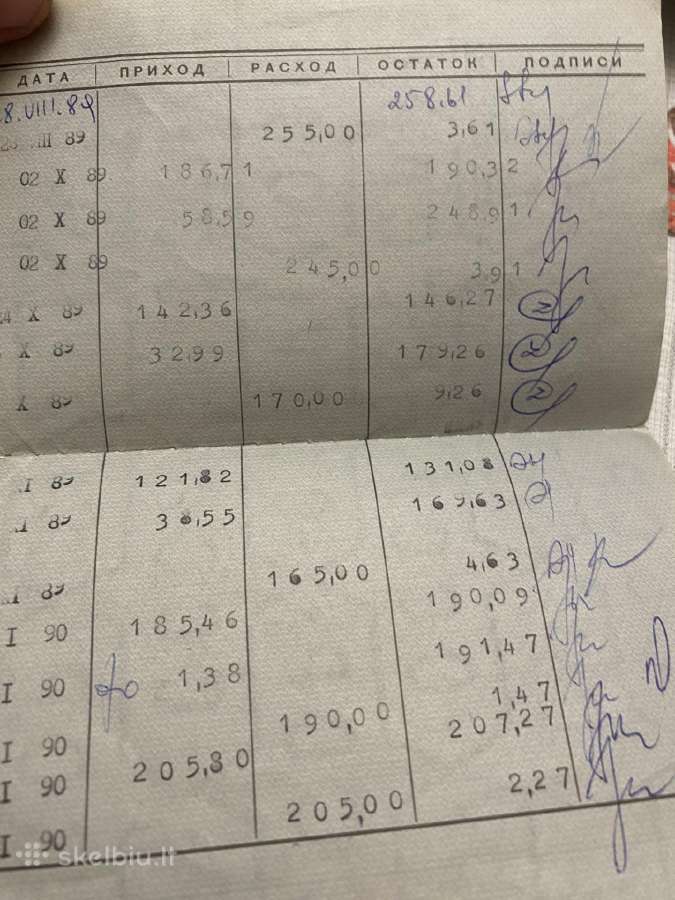 ДАТА ПРИХОД РАСХОД ОСТАТОК ПОДПИСИ
8.VIII.89 258.61
III 89 255,00 3,61
02 X 89 186,71 190,32
02 X 89 58,59 248,91
02 X 89 245,00 3,91
X 89 142,36 146,27 2
X 89 32,99 179,26 2
X 89 170,00 9,26 2
I 89 121,82 131,08
I 89 38,55 169,63
I 89 165,00 4,63
I 90 185,46 190,09
I 90 1,38 191,47
I 90 190,00 1,47
I 90 205,80 207,27
I 90 205,00 2,27
skelbiu.lt